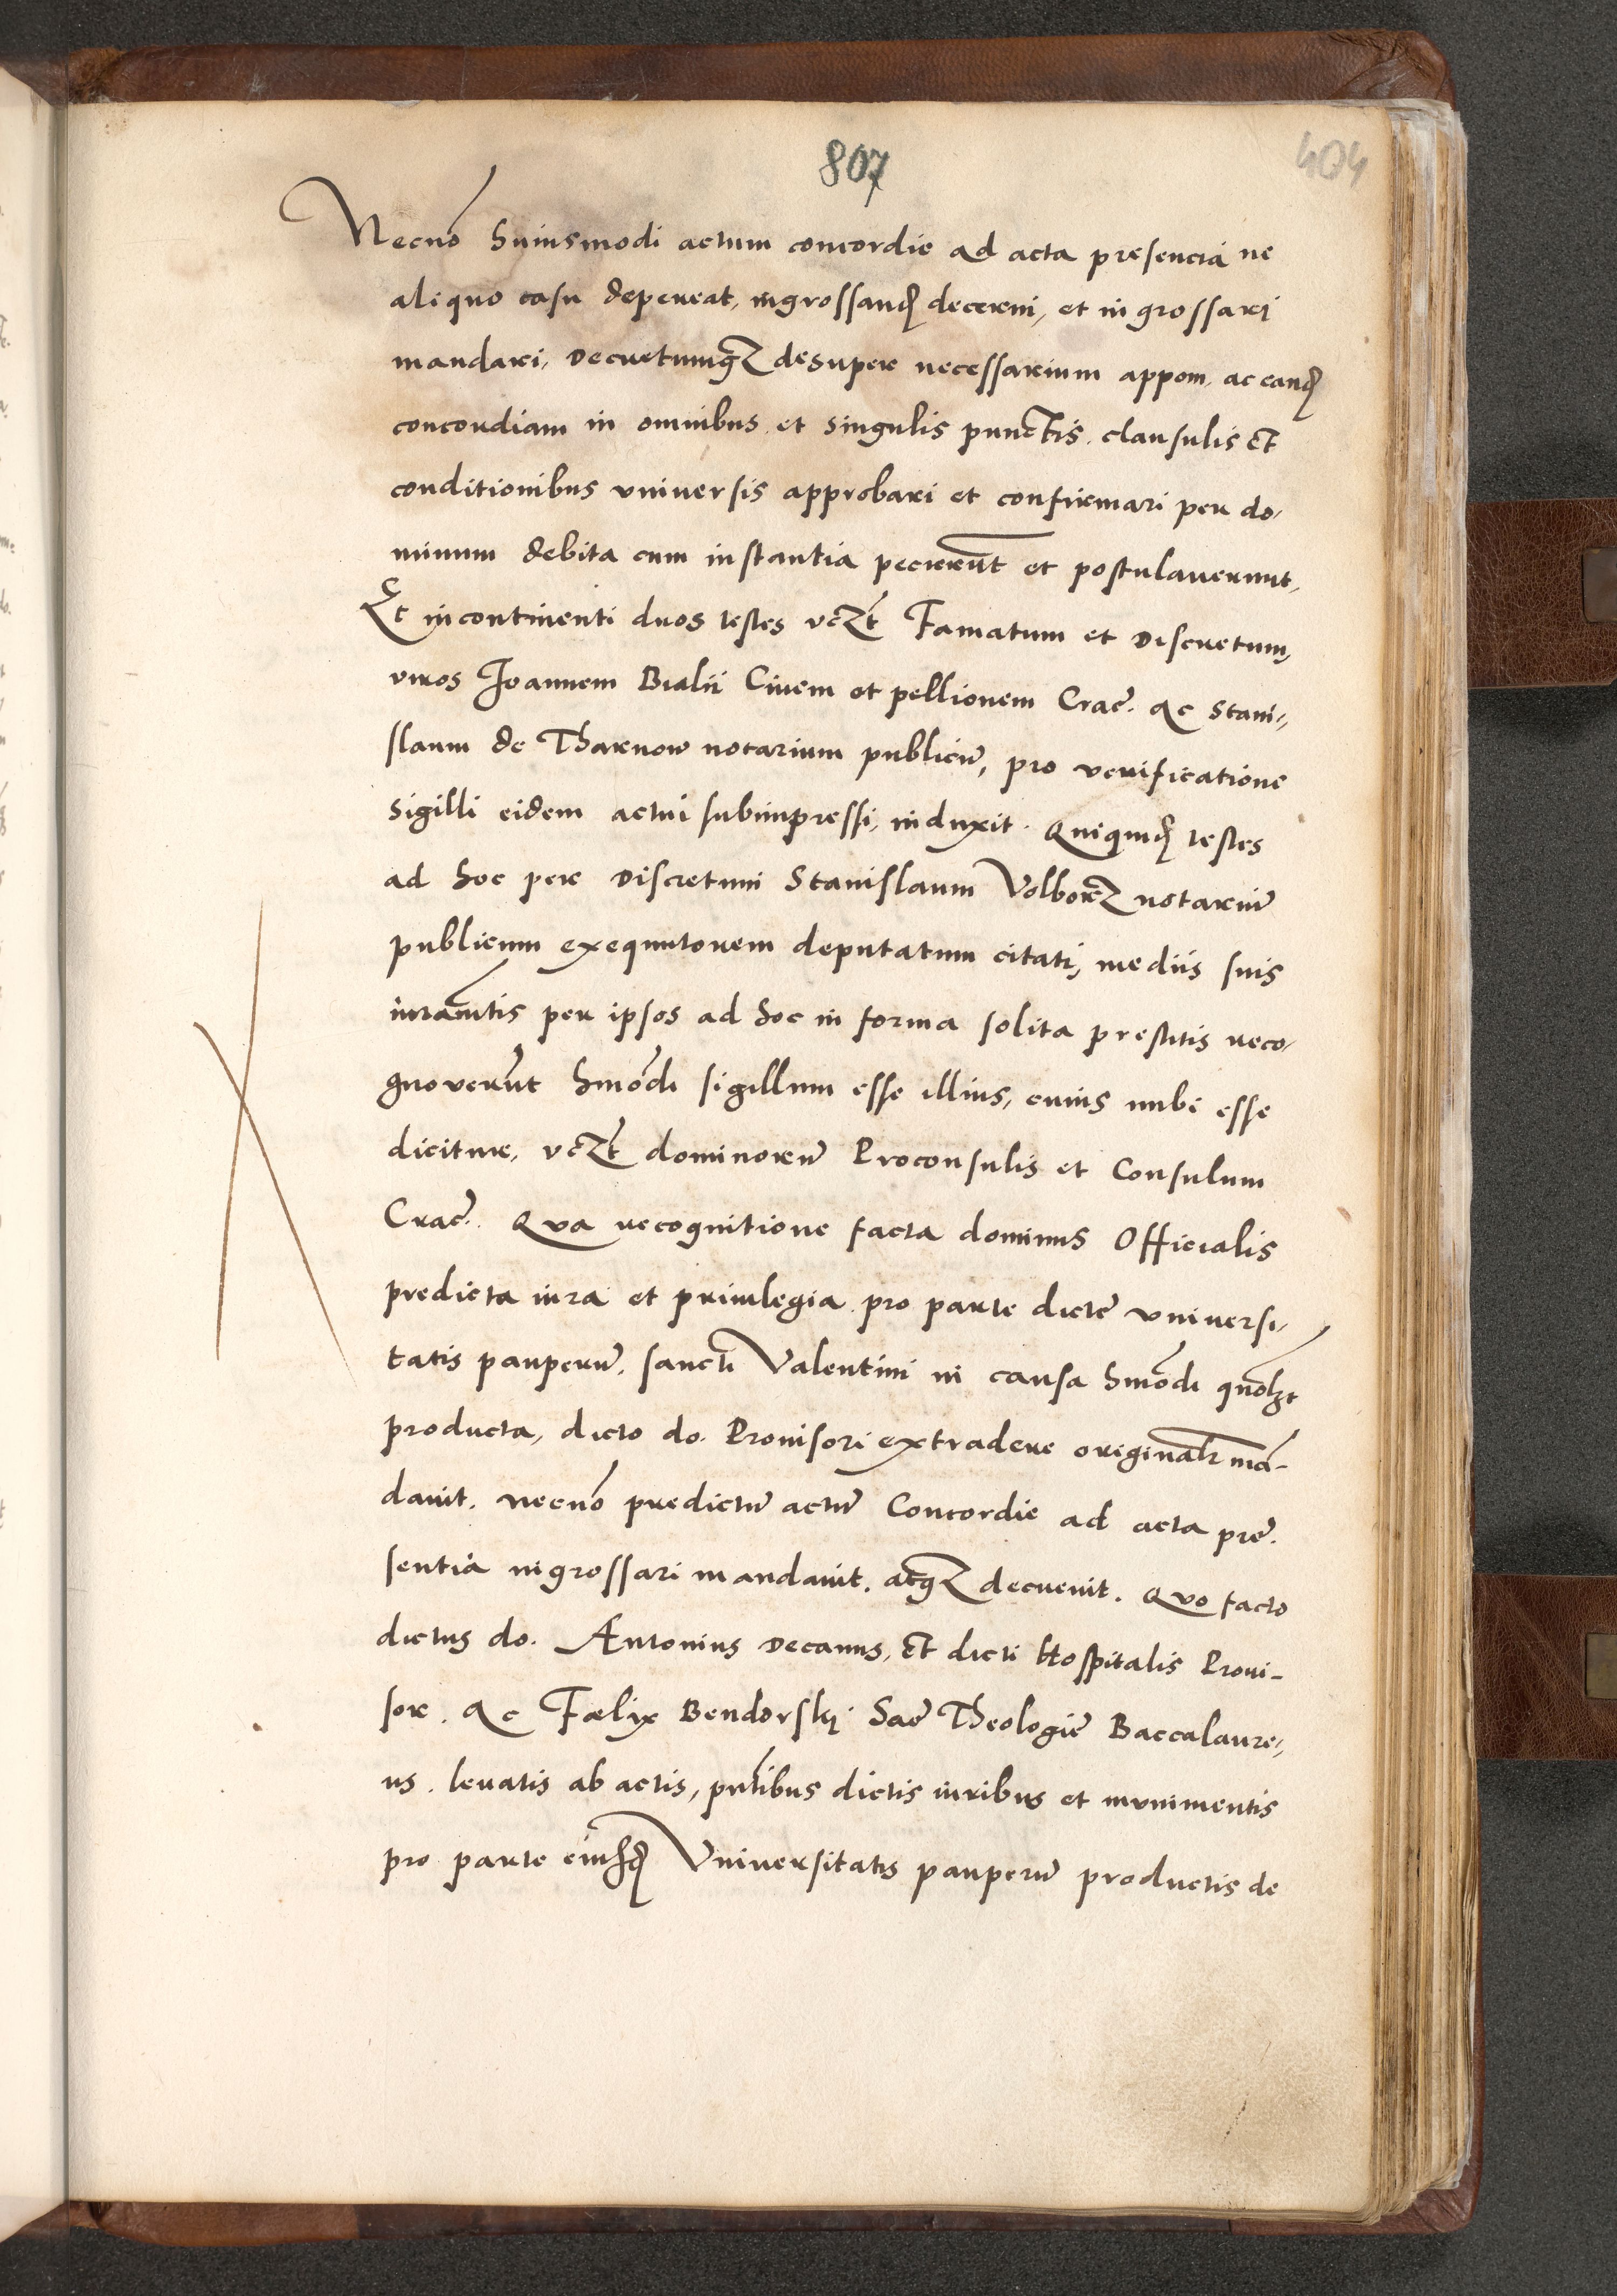 807
404
Necnō huiusmodi actum concordie ad acta presencia ne
aliquo casu depereat, ingrossanđ decerni, et in grossari
mandari, Decretumq₃ desuper necessarium appom, ac eanđ
concordiam in omnibus et singulis punctis, clausulis et
conditionibus vniversis approbari et confirmari per do,
minum debita cum instantia pecierunt et postulaverunt,
Et incontinenti duos testes vcƷt Famatum et Discretum,
viros Joannem Bialii Ciuem et pellionem Crac̄. Ac Stani,,
slaum de Tharnow notarium publicū, pro verificatione
sigilli eidem actui subimpressi, induxit. Quiquiđ testes
ad hoc per Discretum Stanislaum Volborz notariū
publicum exequutorem deputatum citati, mediis suis
iuramtis per ipsos ad hoc in forma solita prestitis reco,
gnoverūt hmōdi sigillum esse illius, cuius inibi esse
dicitur, vcƷt dominorū Proconsulis et Consulum
Crac̄. Qva recognitione facta dominus Officialis
predicta iura et priuilegia pro parte dictę vniversi,
tatis pauperū, sancti Valentini in causa hmōdi quōlȝt
producta, dicto do. Prouisori extradere originalr̄ mā-
dauit. necnō predictū actū Concordie ad acta prē.
sentia ingrossari mandauit, atq₃ decreuit. Qvo facto
dictus do. Antonius Decanus, et dicti Hospitalis Proui-
sor. Ac Fœlix Bendorskj Sac̄ Theologię Baccalaure,,
us. leuatis ab actis, pntībus dictis iuribus et mvnimentis
pro parte eiusđ Vniversitatis pauperū productis de